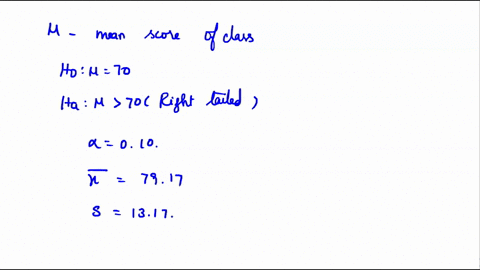 M - mean score of class
H0 : M = 70
Ha : M > 70 ( Right tailed )
α = 0.10.
x̄ = 79.17
S = 13.17.